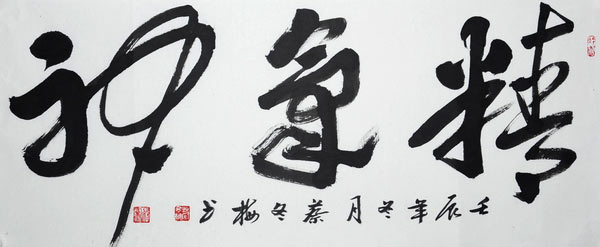 精氣神
壬辰年冬月蔡冬梅书